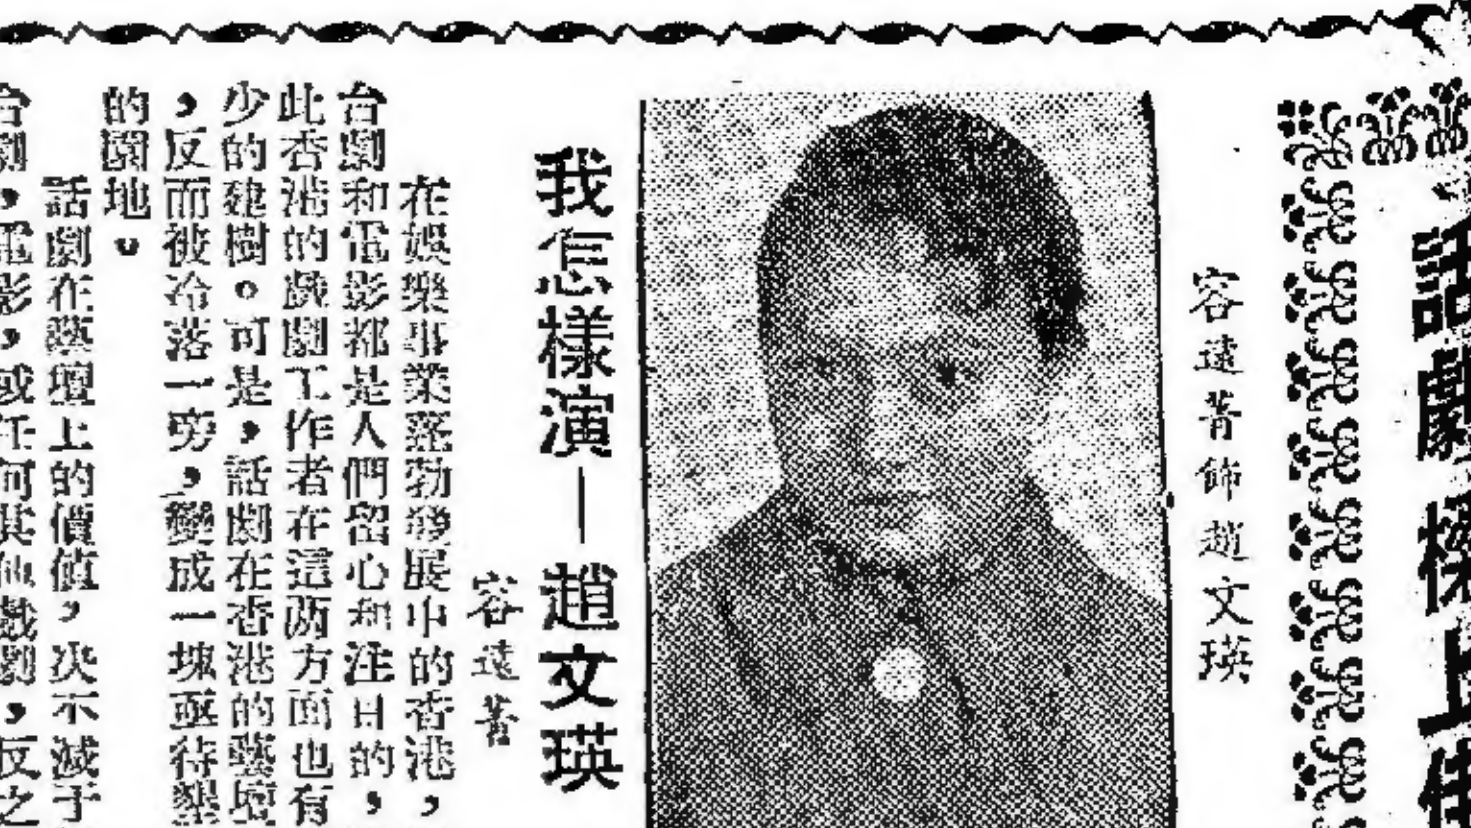 話劇樑上佳
容遠菁飾趙文瑛
我怎樣演—趙文瑛
容遠菁
在娛樂事業蓬勃發展中的香港,
台劇和電影都是人們留心和注目的,
此香港的戲劇工作者在這兩方面也有
少的建樹。可是,話劇在香港的藝壇
,反而被冷落一旁,變成一塊亟待墾
的園地。
話劇在藝壇上的價值,决不減于
台劇,電影,或任何其他戲劇,反之